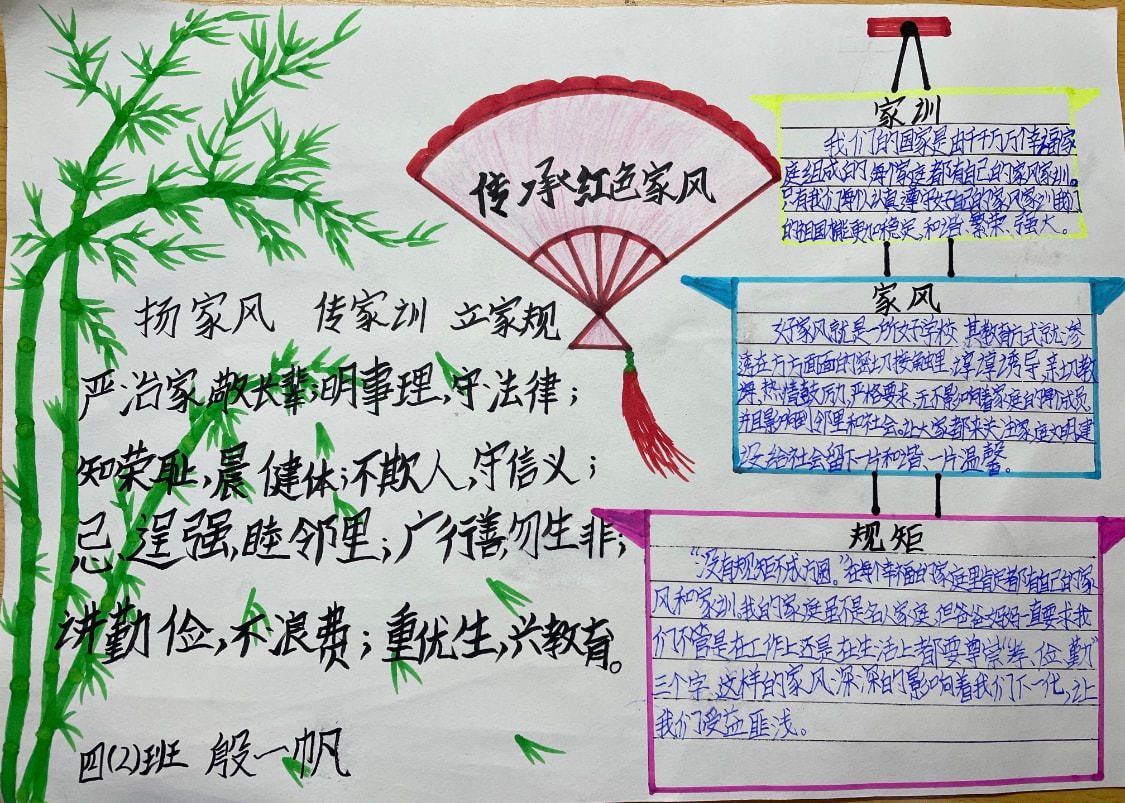 传承红色家风
扬家风 传家训 立家规
严治家,敬长辈;明事理,守法律;
知荣耻,晨健体;不欺人,守信义;
忌逞强,睦邻里;广行善,勿生非;
讲勤俭,不浪费;重优生,兴教育。
四(2)班 殷一帆
家训
我们的国家是由千千万万个幸福家
庭组成的,每个家庭都有自己的家风家训。
只有我们每个认真遵守好自己的家风家训,我们
的祖国才能更加稳定、和谐、繁荣、强大。
家风
好家风就是一所好学校,其教育方式就渗
透在方方面面的密切接触里,谆谆诱导,亲切教
诲,热情鼓励,严格要求,无不影响着家庭的
并且影响到邻里和社会。让大家都来关注家庭文明建
设,给社会留下一片和谐,一片温馨。
规矩
“没有规矩不成方圆。”在每个幸福的家庭里肯定都有自己的家
风和家训。我的家庭虽不是名人家庭,但爸爸妈妈一直要求我
们不管是在工作上还是在生活上都要尊崇“孝、俭、勤”
三个字,这样的家风深深的影响着我们下一代,让
我们受益匪浅。